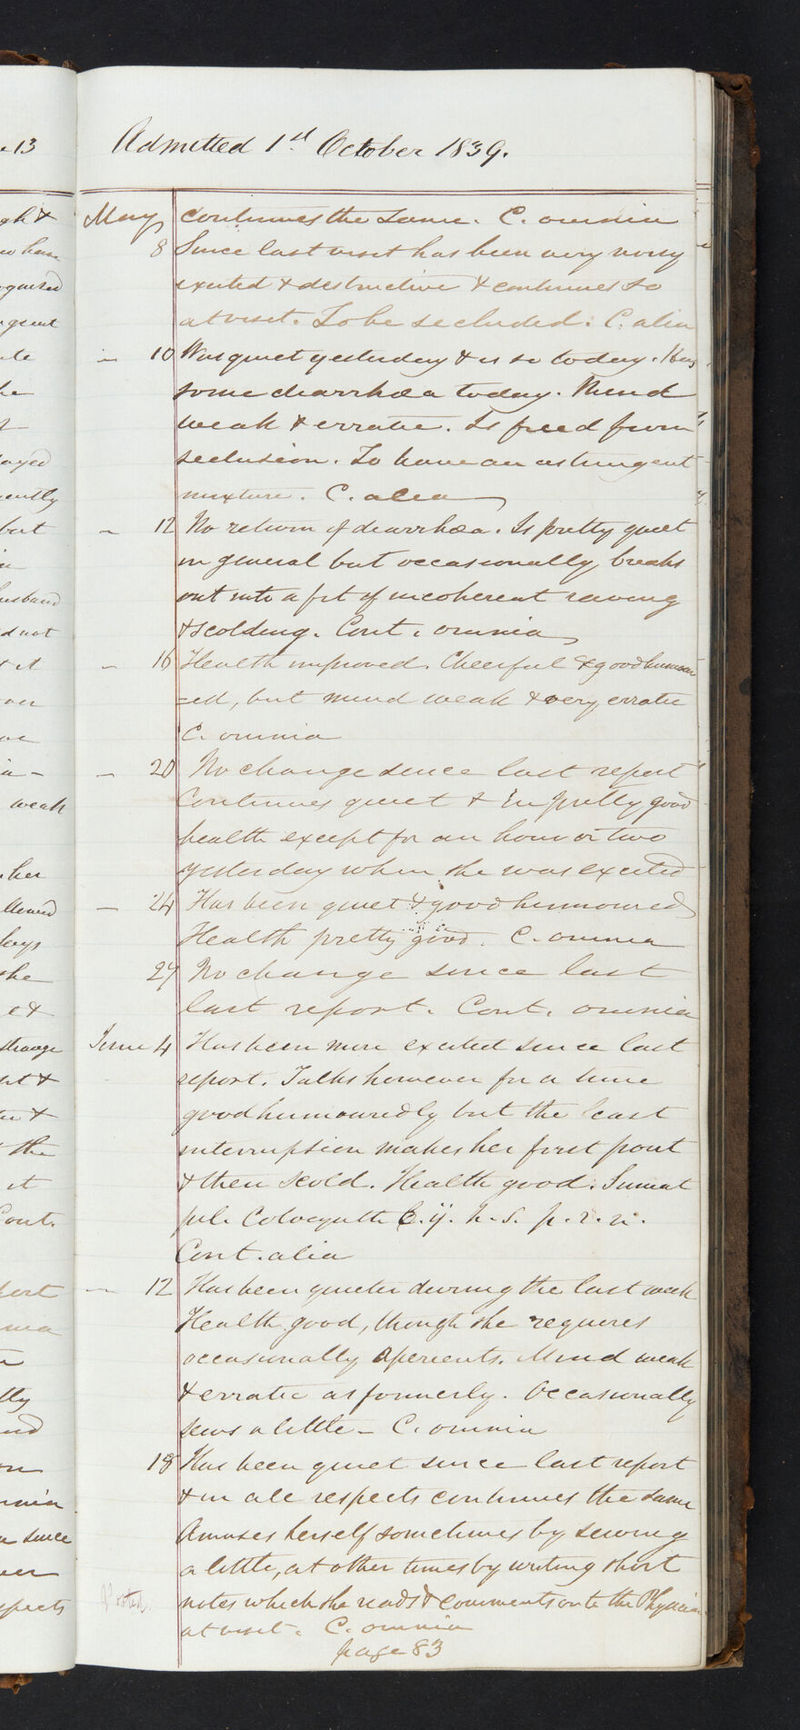 Admitted 1st October 1839.
May continues the same. C. omnia
8 Since last visit has been very noisy
excited & destructive & continues so
at visit. To be secluded. C. alia
– 10 Was quiet yesterday & is so today. Has
some diarrhœa today. Mind
weak & erratic. Is freed from
seclusion. To have an astringent
mixture. C. alia
– 12 No return of diarrhœa. Is pretty quiet
in general but occasionally breaks
out into a fit of incoherent raving
& scolding. Cont. omnia
– 16 Health improved. Cheerful & goodhumour
=ed, but mind weak & very erratic
C. omnia
– 20 No change since last report
Continues quiet & in pretty good
health except for an hour or two
yesterday when she was excited
– 24 Has been quiet & good humoured
Health pretty good. C. omnia
27 No change since last
last report. Cont. omnia
June 4 Has been more excited since last
report. Talks however for a time
goodhumouredly but the least
interruption makes her first pout
& then scold. Health good. Sumat
pil. Colocynth C. ij. h.s. p.r.n.
Cont. alia
– 12 Has been quieter during the last week
Health good, though she requires
occasionally aperients. Mind weak
& erratic as formerly. Occasionally
sews a little – C. omnia
18 Has been quiet since last report
& in all respects continues the same
Amuses herself sometimes by sewing
a little, at other times by writing short
notes which she reads & comments on to the Physician
at visit. C. omnia
page 83